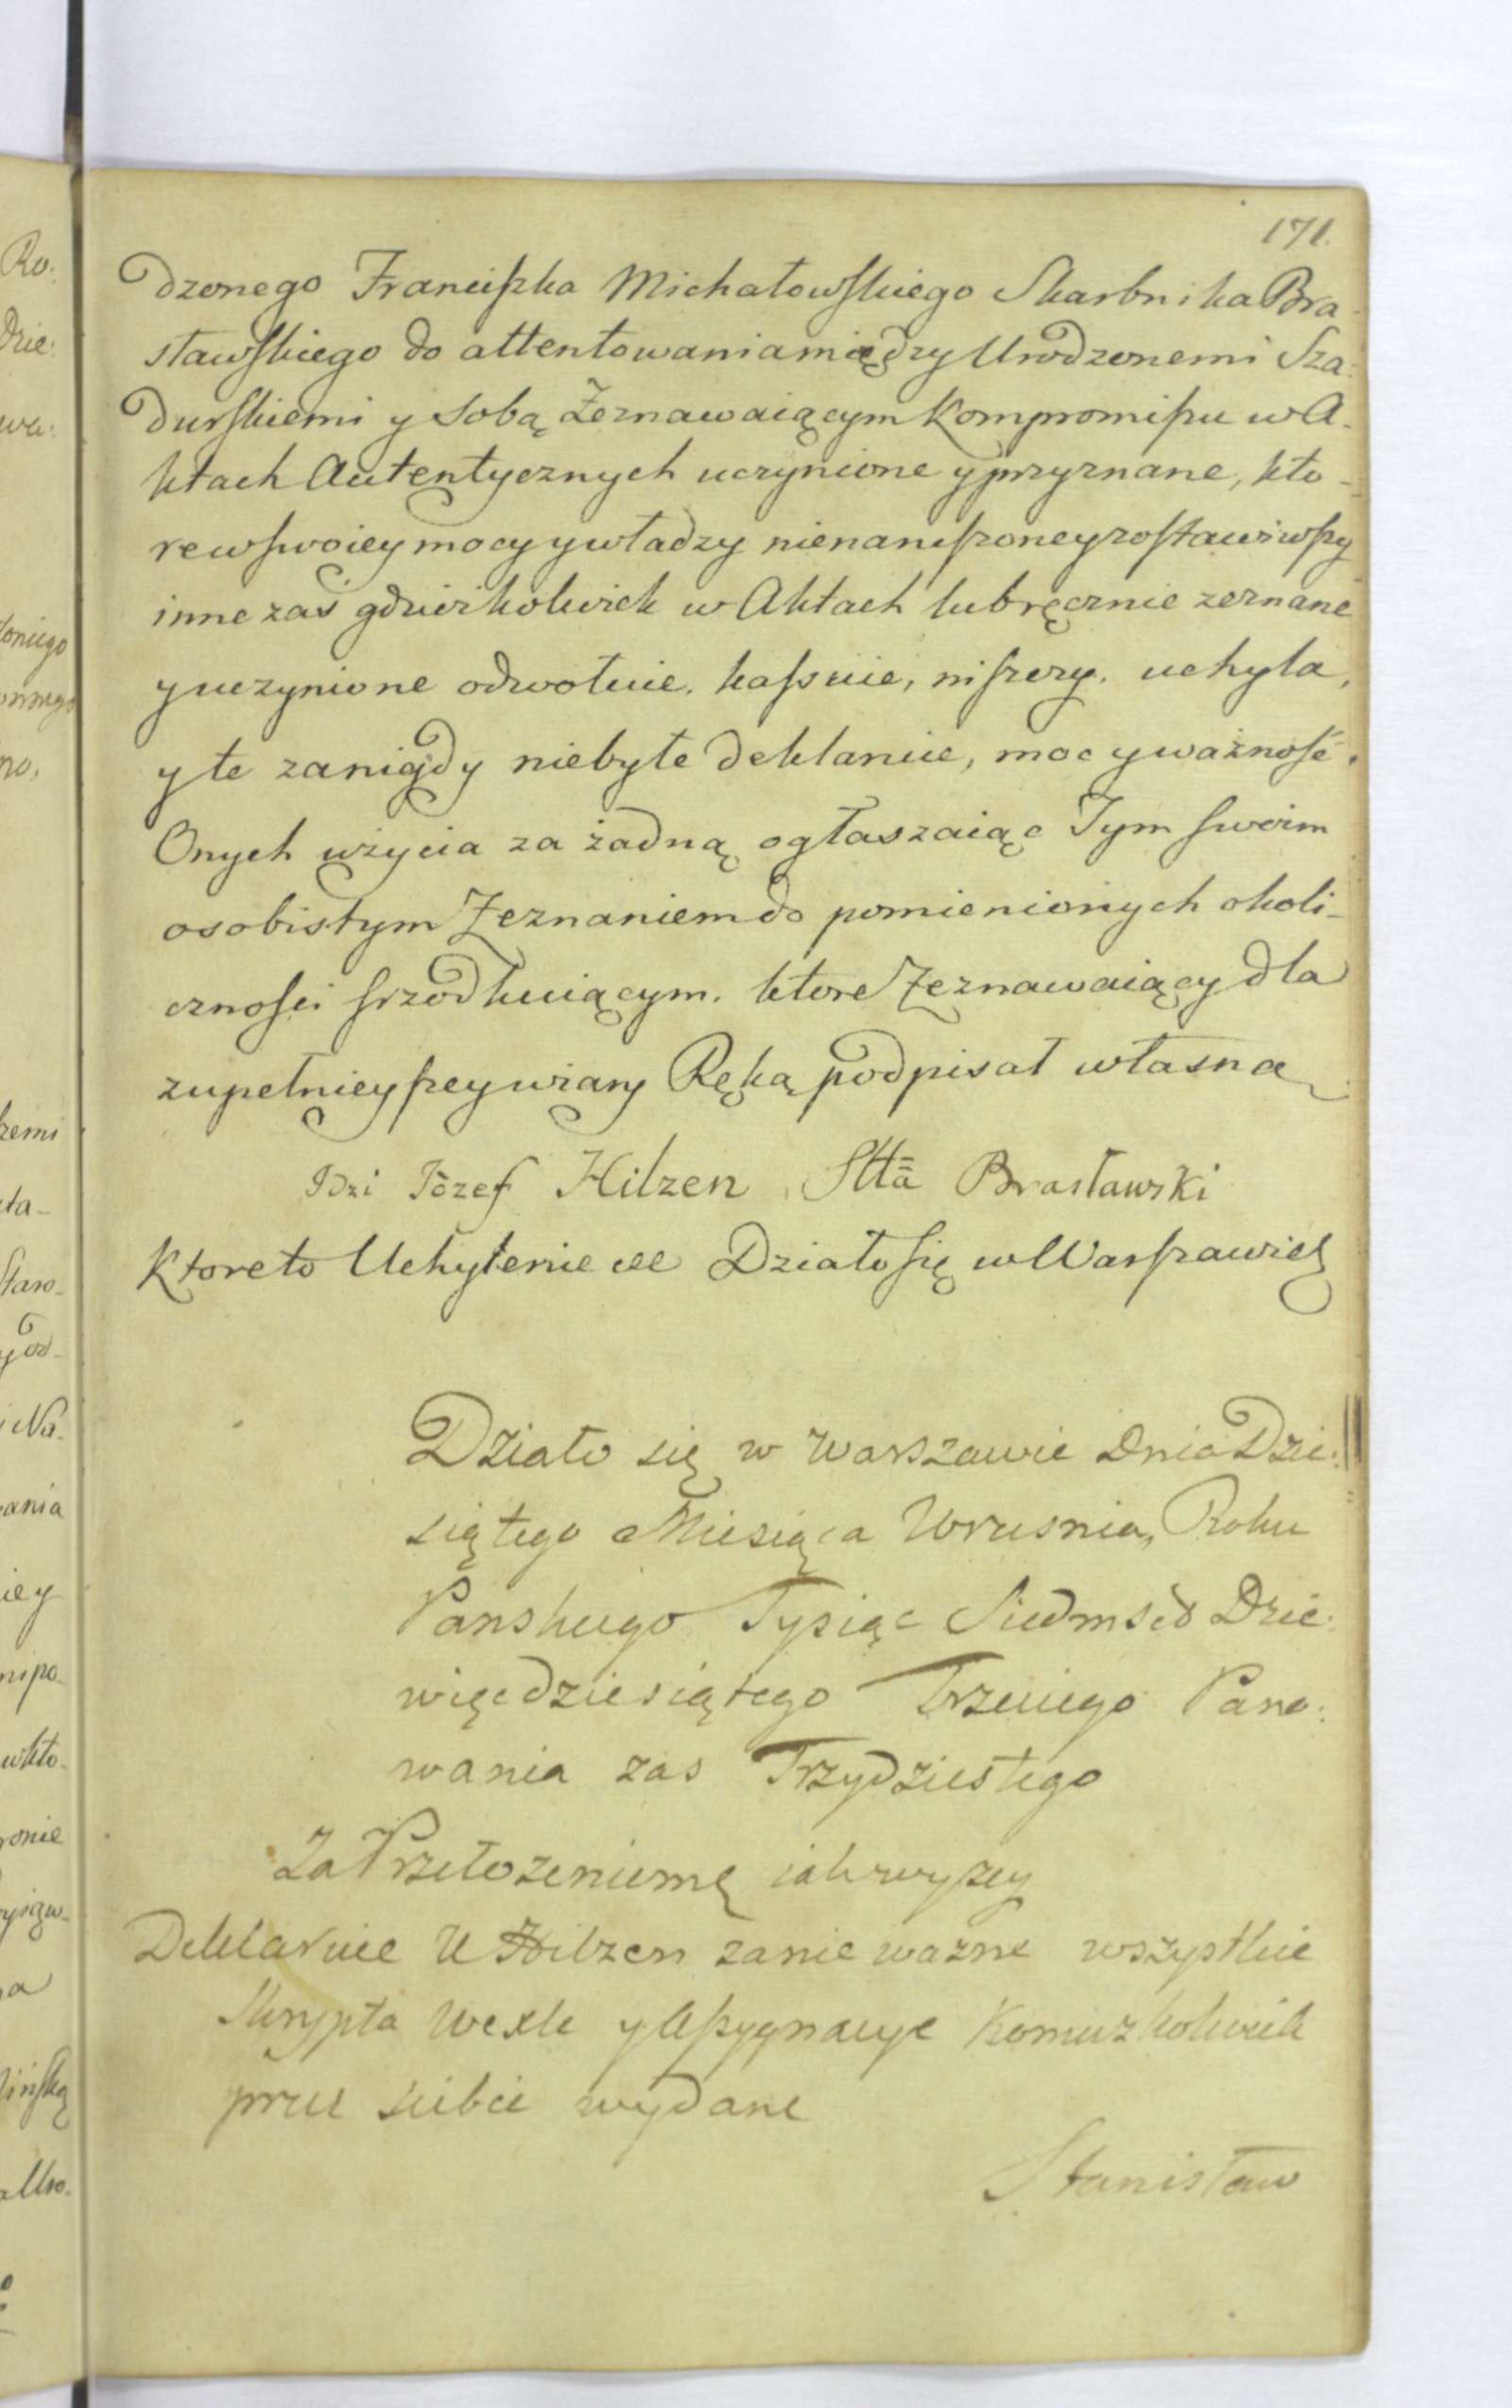 171.
dzonego Franciszka Michałowskiego Skarbnika Bra
sławskiego do attentowania między Urodzonemi Sza:
durskiemi y sobą Zeznawaiącym Kompromissu w A-
ktach Autentycznych uczynione y przyznane, kto-
re w swoiey mocy y władzy nienaruszoney zostawiwszy
inne zaś gdzieżkolwiek w Aktach lub ręcznie zeznane
y uczynione odwołuie, kassuie, niszczy, uchyla,
y te za nigdy niebyłe deklaruie, moc y ważność
Onych użycia za żadną ogłaszaiąc Tym swoim
osobistym Zeznaniem do pomienionych okoli-
czności srzodkuiącym. ktore Zeznawaiący dla
zupełnieyszey wiary Ręką podpisał własną
Idzi Józef Hilzen Stta Brasławski
Ktore to Uchylenie etc Działo się w Warszawie
Działo się w Warszawie Dnia Dzie:
siątego Miesiąca Wrusnia, Roku
Panskiego Tysiąc Siedmset Dzie:
więcdziesiątego Trzeciego Pano:
wania zas Trzydziestego
Za Przełozeniem iak wyzey
Deklaruie U Hilzen za nie wazne wszystkie
Skrypta Wexle y Assygnacye Komuzkolwiek
przez siebie wydane
Stanisław